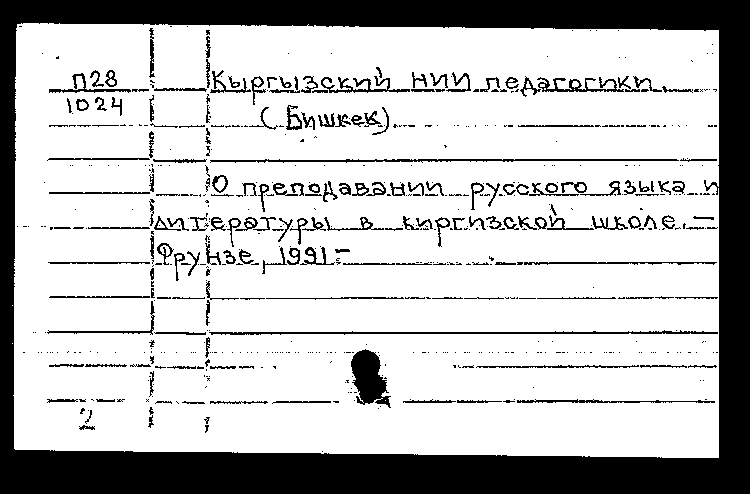 П28 Кыргызский НИИ педагогики.
1024
(Бишкек).
О преподавании русского языка и
литературы в киргизской школе. —
Фрунзе, 1991. —
2